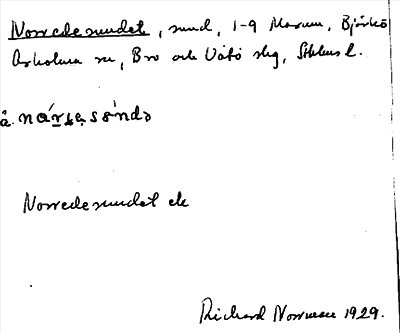 Norredesundet, sund, 1-9 Marum, Björkö
Arholma sn, Bro och Vätö skg, Sthlms l.
Norredesundet ek
Richard Norrman 1929.